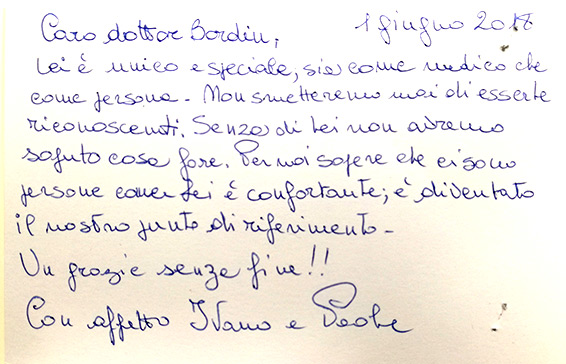 Caro dottor Bordin, 1 giugno 2017
Lei è unico e speciale, sia come medico che
come persona - Non smetteremo mai di esserle
riconoscenti. Senza di Lei non avremo
saputo cosa fare. Per noi sapere che ci sono
persone come Lei è confortante; è diventato
il nostro punto di riferimento -
Un grazie senza fine!!
Con affetto Ivano e